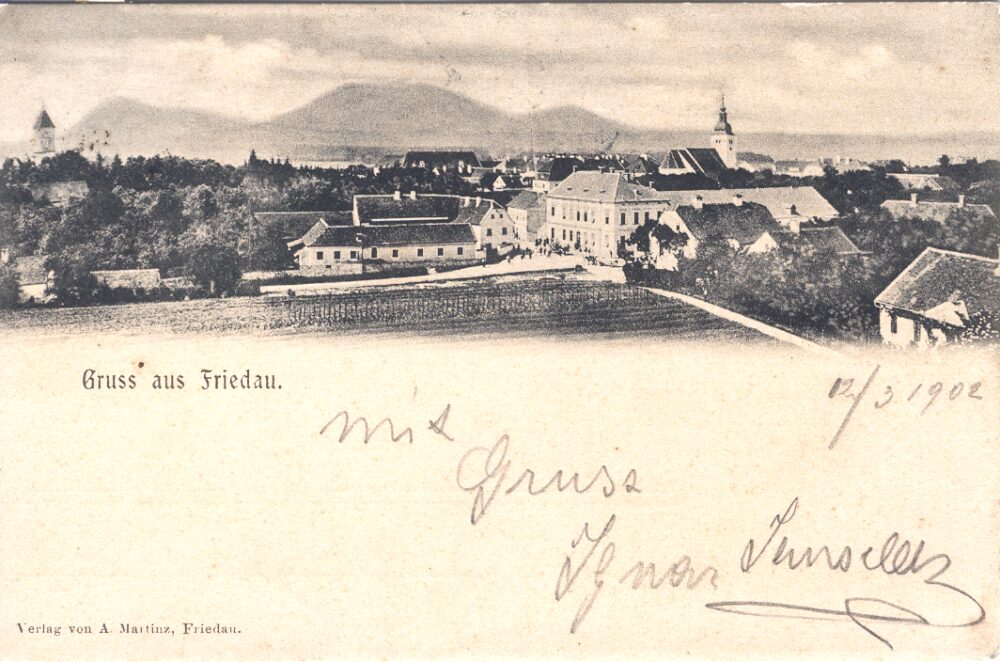 Gruss aus Friedau.
12/3 1902
mit
Gruss
Ignaz
Verlag von A. Martinz, Friedau.